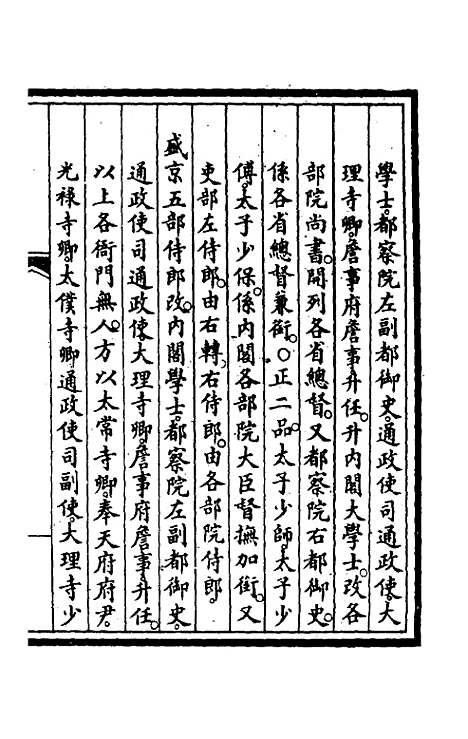 學士。都察院左副都御史。通政使司通政使。大
理寺卿。詹事府詹事升任。升內閣大學士。改各
部院尚書。開列各省總督。又都察院右都御史。
係各省總督兼銜。○正二品。太子少師。太子少
傅。太子少保。係內閣各部院大臣督撫加銜。又
吏部左侍郎。由右轉。右侍郎。由各部院侍郎。
盛京五部侍郎。改內閣學士。都察院左副都御史。
通政使司通政使。大理寺卿。詹事府詹事升任。
以上各衙門無人。方以太常寺卿。奉天府府尹。
光祿寺卿。太僕寺卿。通政使司副使。大理寺少